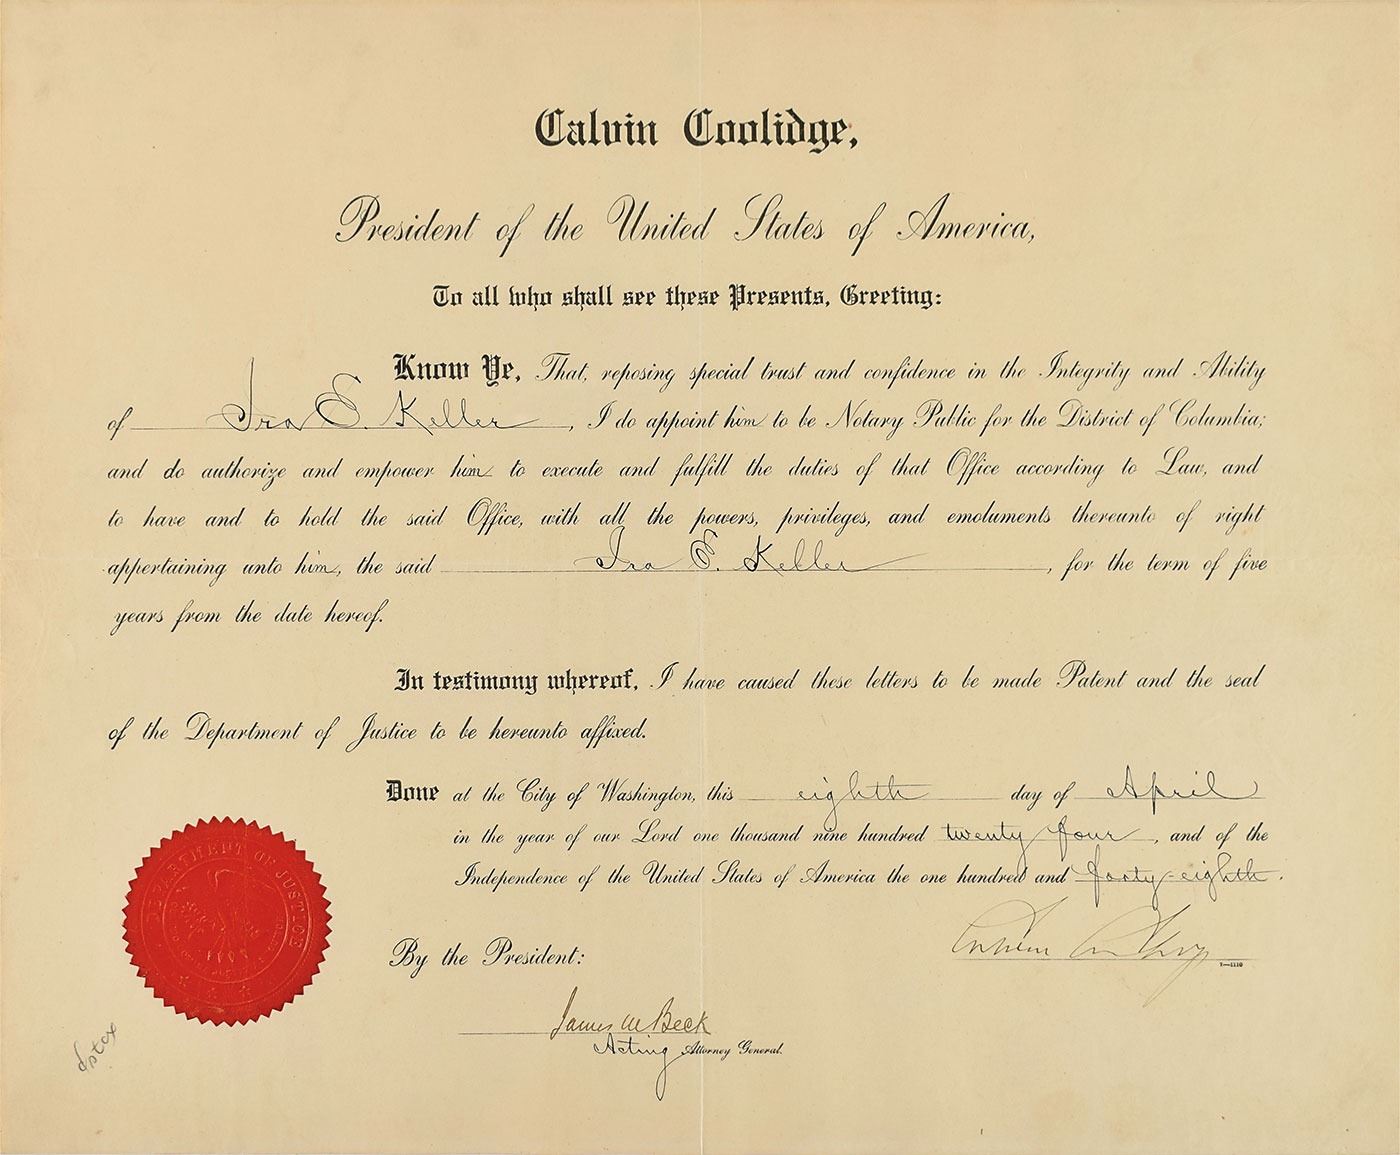 Calvin Coolidge,
President of the United States of America,
To all who shall see these Presents, Greeting:
Know Ye, That, reposing special trust and confidence in the Integrity and Ability
of Ira E. Keller, I do appoint him to be Notary Public for the District of Columbia;
and do authorize and empower him to execute and fulfill the duties of that Office according to Law, and
to have and to hold the said Office, with all the powers, privileges, and emoluments thereunto of right
appertaining unto him, the said Ira E. Keller, for the term of five
years from the date hereof.
In testimony whereof, I have caused these letters to be made Patent and the seal
of the Department of Justice to be hereunto affixed.
Done at the City of Washington, this eighth day of April
in the year of our Lord one thousand nine hundred twenty four, and of the
Independence of the United States of America the one hundred and forty-eighth.
Calvin Coolidge
7—1110
By the President:
James M Beck
Acting Attorney General.
DEPARTMENT OF JUSTICE